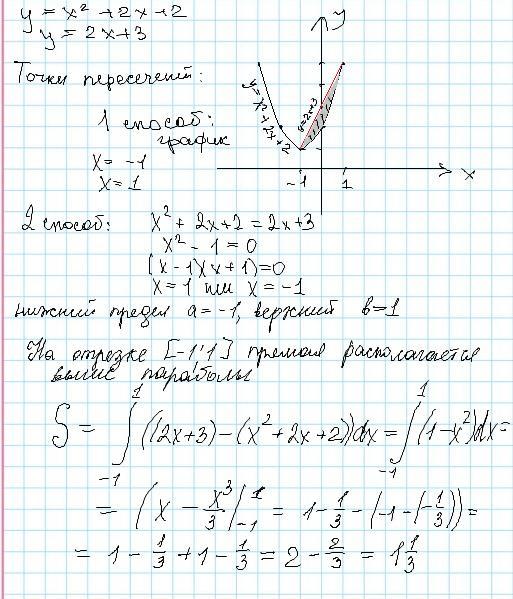 y = x² + 2x + 2
y = 2x + 3
Точки пересечений:
1 способ:
график
x = -1
x = 1
y
y = x² + 2x + 2
y = 2x + 3
-1
1
x
2 способ: x² + 2x + 2 = 2x + 3
x² - 1 = 0
(x - 1)(x + 1) = 0
x = 1 или x = -1
нижний предел a = -1, верхний b = 1
На отрезке [-1; 1] прямая располагается
выше параболы
S = ∫₋₁¹ ((2x+3) - (x² + 2x + 2))dx = ∫₋₁¹ (1 - x²)dx =
= (x - x³/3 |₋₁¹ = 1 - 1/3 - (-1 - (-1/3)) =
= 1 - 1/3 + 1 - 1/3 = 2 - 2/3 = 1 1/3